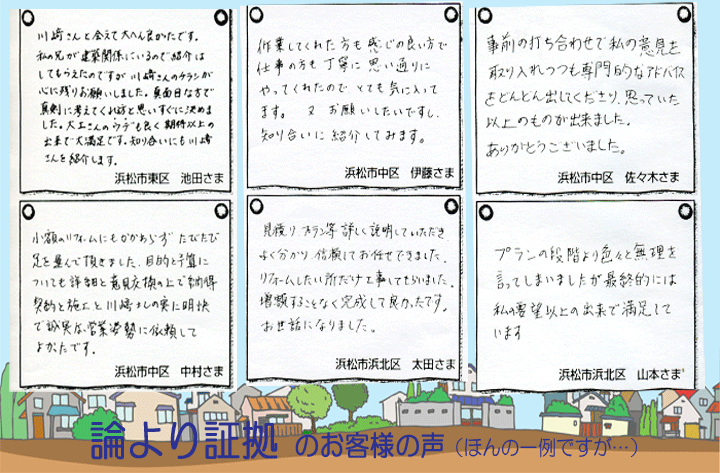 川崎さんと会えて大へん良かたです。
私の兄が建築関係にいるので紹介は
してもらえたのですが川崎さんのチラシが
心に残りお願いしました。真面目な方で
真剣に考えてくれ訪と思いすぐに決めま
した。大工さんのウデも良く期待以上の
出来で大満足です。知り合いにも川崎
さんを紹介します。
浜松市東区 池田さま
作業してくれた方も感じの良い方で
仕事の方も丁寧に思い通りに
やってくれたのでとても気に入って
ます。又お願いしたいですし、
知り合いに紹介してみます。
浜松市中区 伊藤さま
事前の打ち合わせで私の意見を
取り入れつつも専門的なアドバイス
をどんどん出してくださり、思っていた
以上のものが出来ました。
ありがとうございました。
浜松市中区 佐々木さま
小額のリフォームにもかかわらず たびたび
足を運んで頂きました。目的と予算に
ついても詳細と意見交換の上で納得
契約と施工と川崎さんの実に明快
で誠実な営業姿勢に依頼して
よかたです。
浜松市中区 中村さま
見積り、プラン等詳しく説明していただき
よく分かり信頼してお任せできました。
リフォームしたい所だけ工事してもらいました。
増額することなく完成して良かったです。
お世話になりました。
浜松市浜北区 太田さま
プランの段階より色々と無理を
言ってしまいましたが最終的には
私の要望以上の出来で満足して
います
浜松市浜北区 山本さま
論より証拠 のお客様の声（ほんの一例ですが…）